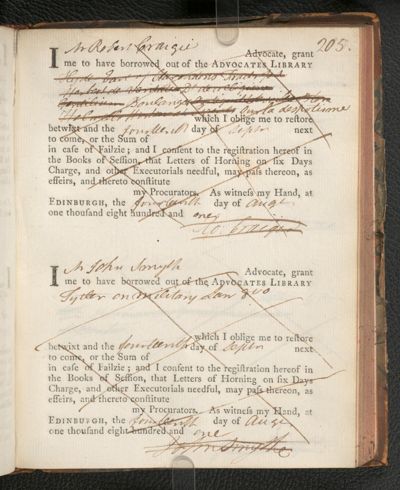 205.
I Mr Robert Craigie Advocate, grant
me to have borrowed out of the ADVOCATES LIBRARY
which I oblige me to reſtore
betwixt and the fourteenth day of Septr next
to come, or the Sum of
in caſe of Failzie; and I conſent to the regiſtration hereof in
the Books of Seſſion, that Letters of Horning on ſix Days
Charge, and other Executorials needful, may paſs thereon, as
effeirs, and thereto conſtitute
my Procurators. As witneſs my Hand, at
EDINBURGH, the fourteenth day of Augt
one thouſand eight hundred and one
Ro. Craigie
I Mr John Smyth Advocate, grant
me to have borrowed out of the ADVOCATES LIBRARY
Tytler on military Law 8vo
which I oblige me to reſtore
betwixt and the fourteenth day of Septr next
to come, or the Sum of
in caſe of Failzie; and I conſent to the regiſtration hereof in
the Books of Seſſion, that Letters of Horning on ſix Days
Charge, and other Executorials needful, may paſs thereon, as
effeirs, and thereto conſtitute
my Procurators. As witneſs my Hand, at
EDINBURGH, the fourteenth day of Augt
one thouſand eight hundred and one
John Smyth